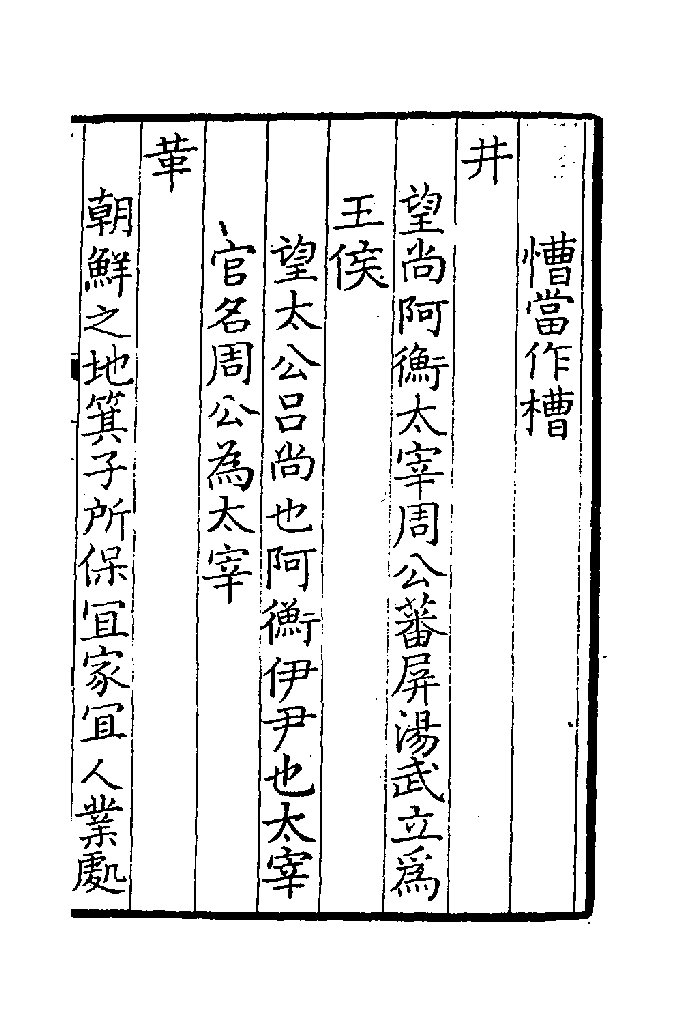 慒當作槽
井
望尚阿衡太宰周公蕃屏湯武立為
王侯
望太公呂尚也阿衡伊尹也太宰
官名周公為太宰
革
朝鮮之地箕子所保冝家冝人業處